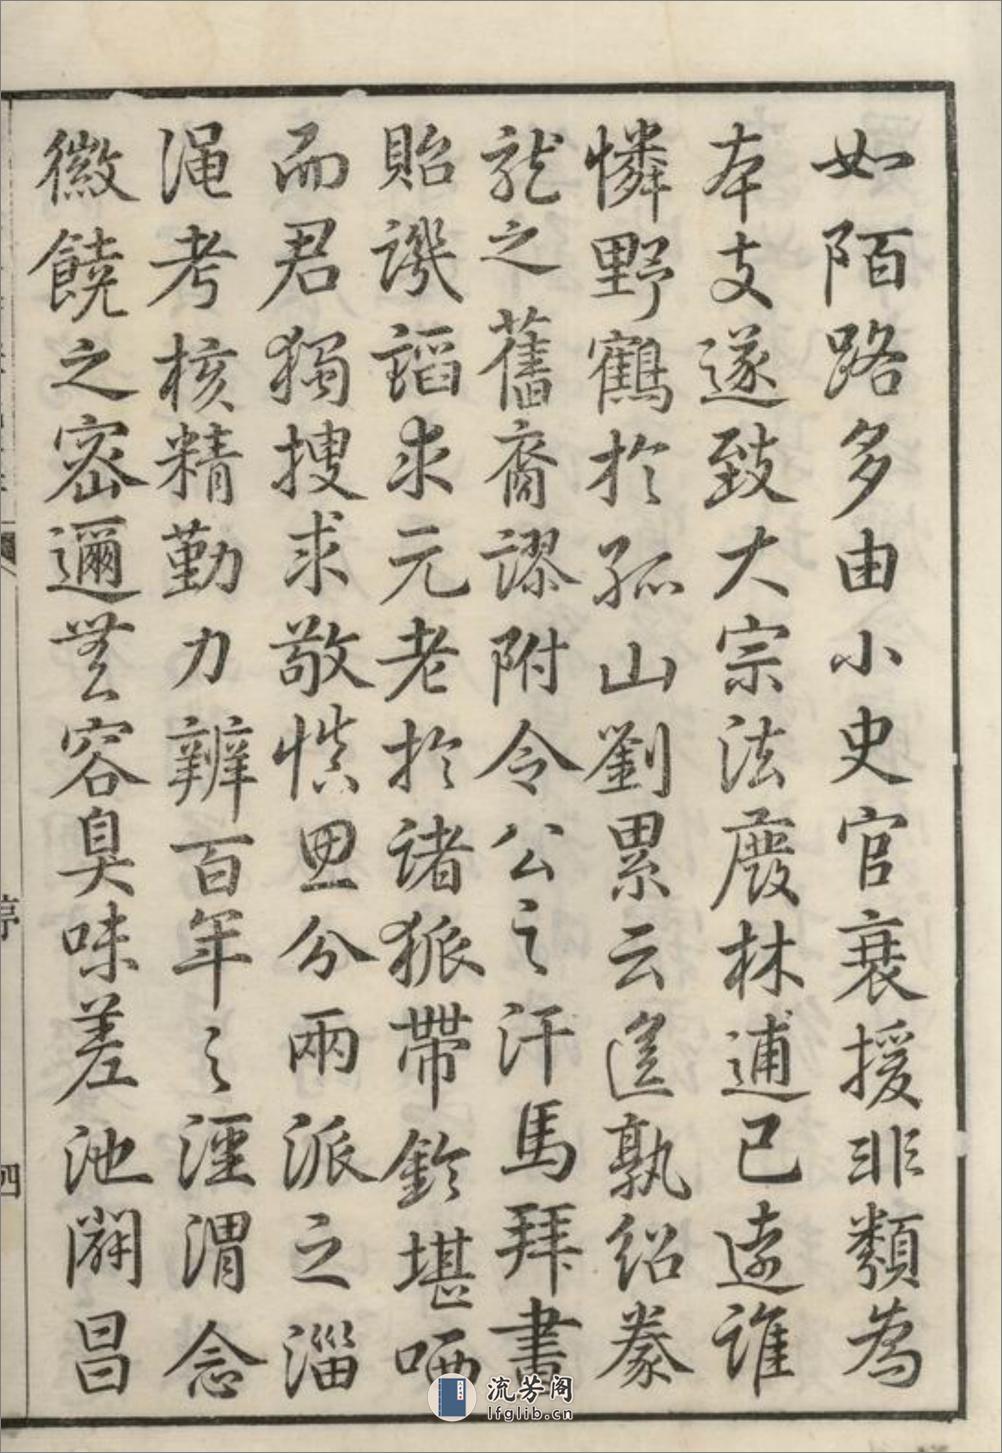 如陌路多由小史官衰援非類為
本支遂致大宗法廢林逋已遠誰
憐野鶴於孤山劉累云遙孰紹豢
龍之舊裔謬附令公之汗馬拜書
貽譏謟求元老於諸狐帶鈴堪哂
而君獨搜求敬慎思分兩派之淄
澠考核精勤力辨百年之涇渭念
徽饒之密邇無容臭味差池闢昌
序
四
流芳阁
lfglib.cn